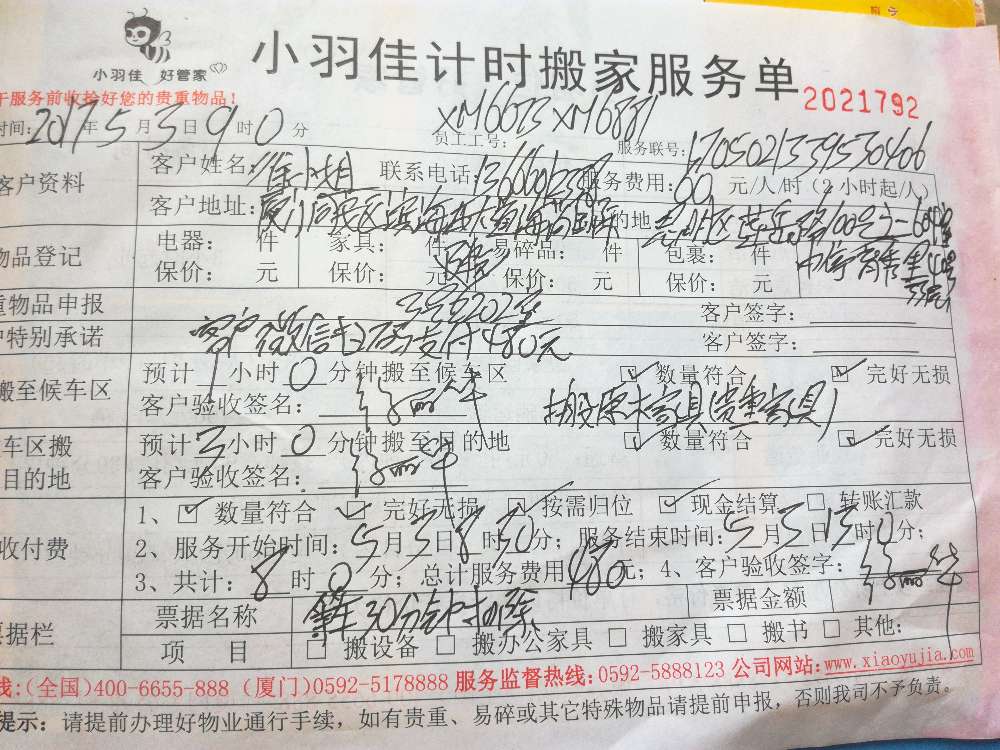 小羽佳 好管家
小羽佳计时搬家服务单
于服务前收拾好您的贵重物品！
2021792
时间：2017年5月3日9时0分 员工工号：XM6673 XM6881 服务联号：1705021339530406
客户资料 客户姓名： 联系电话： 服务费用：60元/人/时（2小时起/人）
客户地址： 的地
物品登记 电器： 件 家具： 件 易碎品： 件 包裹： 件
保价： 元 保价： 元 保价： 元 保价： 元
重物品申报 3号6202室 客户签字：
户特别承诺 客户微信扫码支付480元 客户签字：
搬至候车区 预计 小时0分钟搬至候车区 数量符合 完好无损
客户验收签名： 搬原木家具(贵重家具)
车区搬 预计3小时0分钟搬至目的地 数量符合 完好无损
目的地 客户验收签名：
1、 数量符合 完好无损 按需归位 现金结算 转账汇款
收付费 2、服务开始时间：5月3日8时30分；服务结束时间：5月3日13时0分；
3、共计：8时0分；总计服务费用480元；4、客户验收签字：
票据栏 票据名称 30分钟扣除 票据金额
项 目 搬设备 搬办公家具 搬家具 搬书 其他：
线：(全国)400-6655-888 (厦门)0592-5178888 服务监督热线：0592-5888123 公司网站：www.xiaoyujia.com
提示：请提前办理好物业通行手续，如有贵重、易碎或其它特殊物品请提前申报，否则我司不予负责。